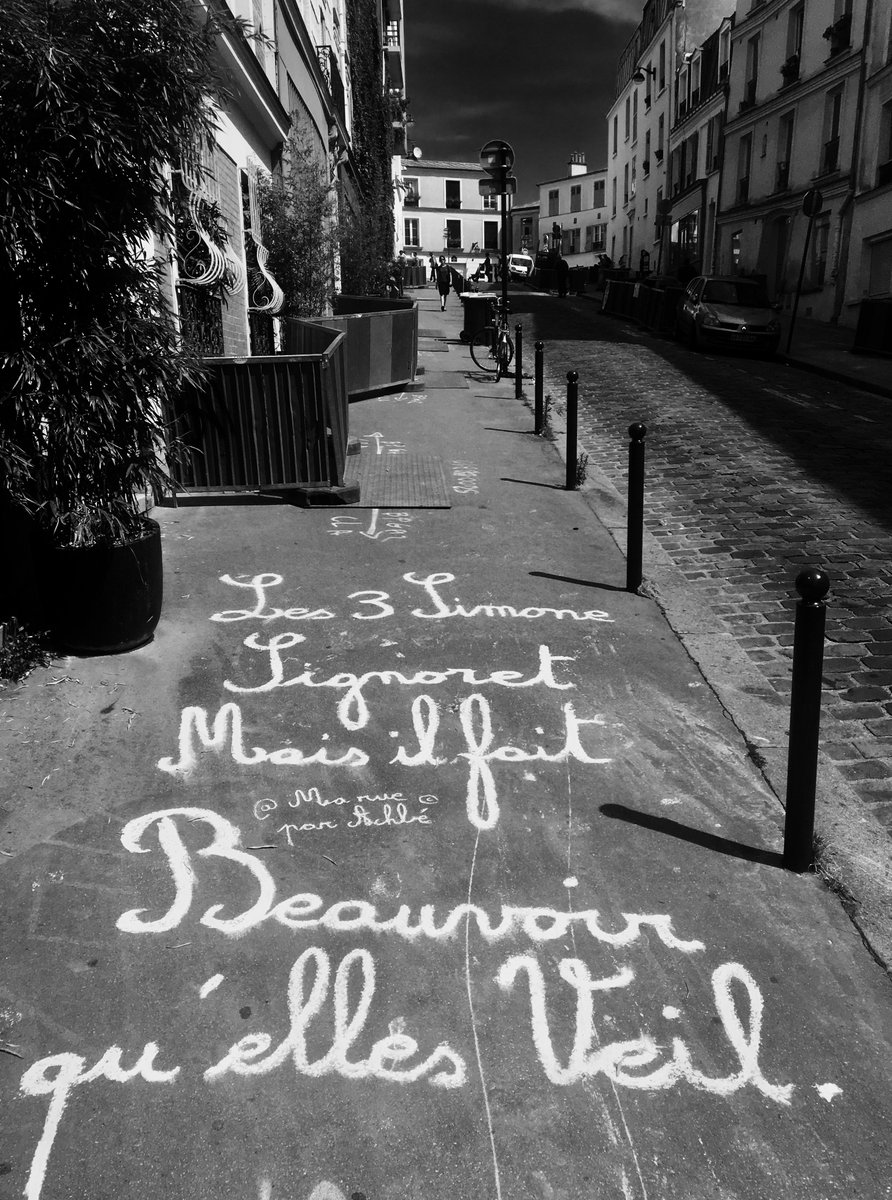 Les 3 Simone
Signoret
Mais il fait
@ Ma rue ©
par Achbé
Beauvoir
qu'elles Veil.